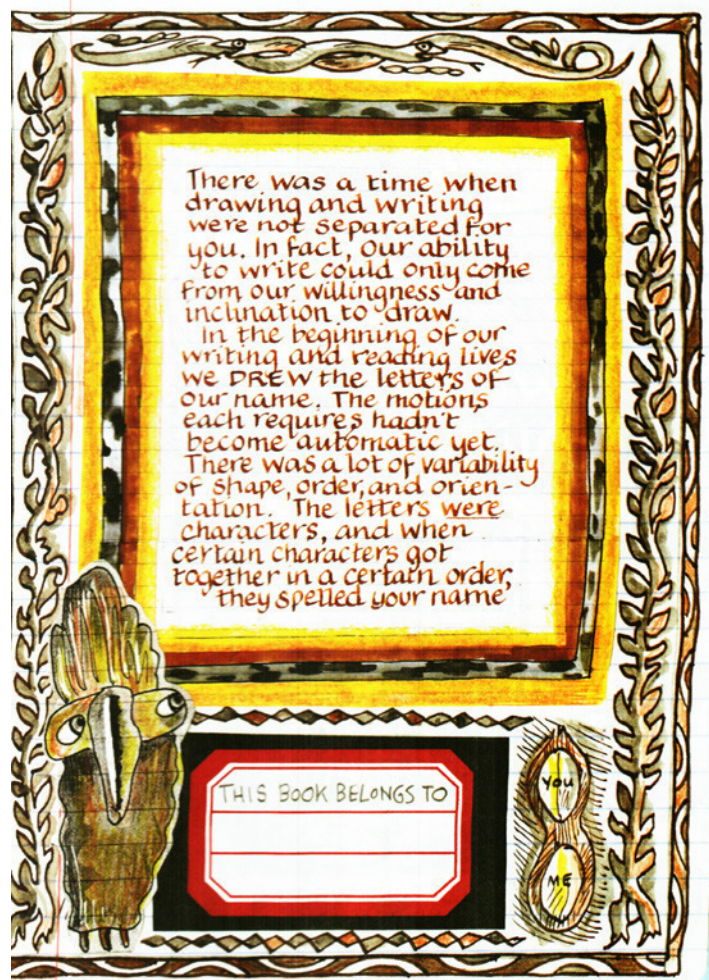 There was a time when
drawing and writing
were not separated for
you. In fact, our ability
to write could only come
from our willingness and
inclination to draw.
In the beginning of our
writing and reading lives
we DREW the letters of
our name. The motions
each requires hadn't
become automatic yet.
There was a lot of variability
of shape, order, and orien-
tation. The letters were
characters, and when
certain characters got
together in a certain order,
they spelled your name
THIS BOOK BELONGS TO
YOU
ME